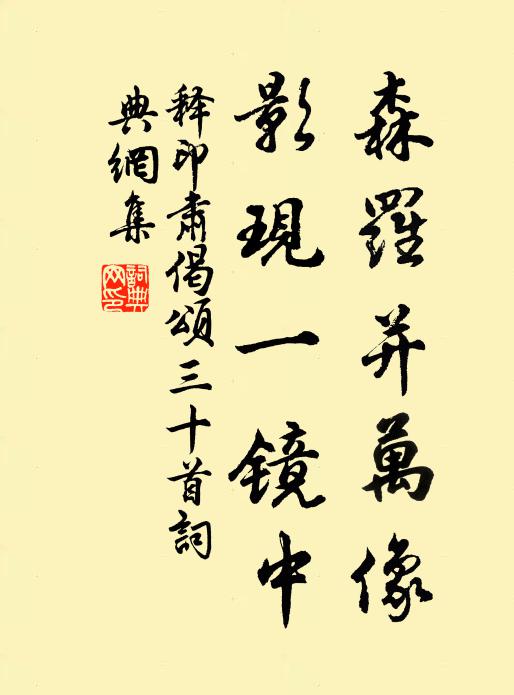 森羅并萬像
影現一鏡中
释印肅偈頌三十首詞
典網集
詞典網印